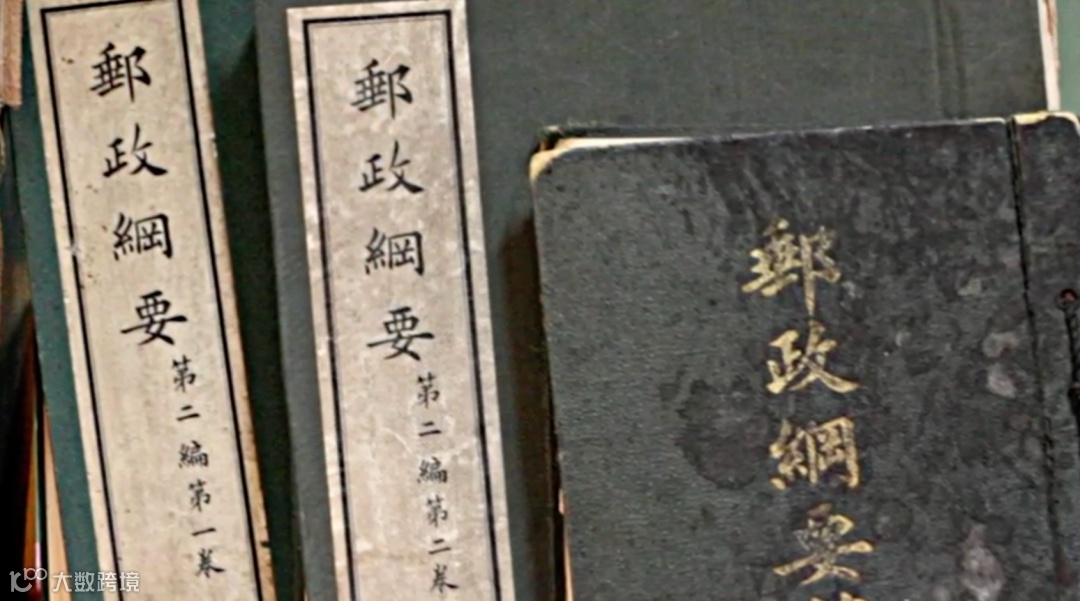 郵政綱要
第二編第一卷
郵政綱要
第二編第二卷
郵政綱要
大数跨境